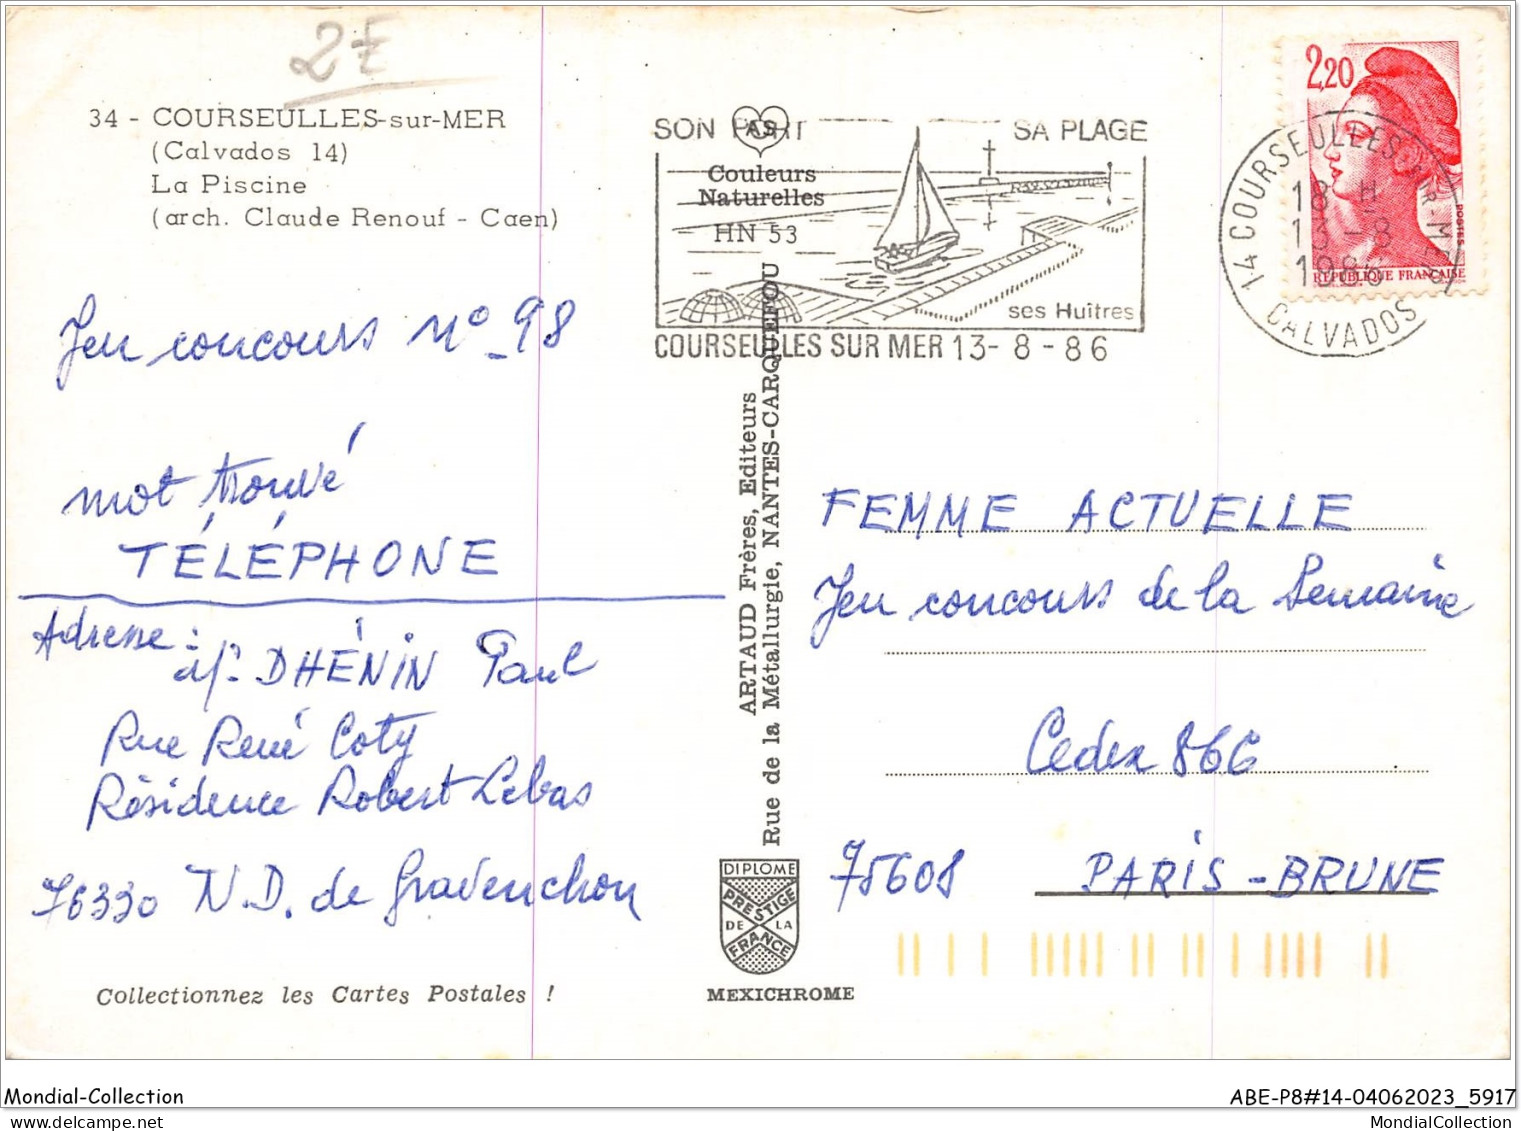 2€
34 - COURSEULLES-sur-MER
(Calvados 14)
La Piscine
(arch. Claude Renouf - Caen)
Jeu concours N° 98
mot trouvé
TÉLÉPHONE
Adresse :
DHÉNIN Paul
Rue René Coty
Résidence Robert Lebas
76330 N.D. de Gravenchon
Collectionnez les Cartes Postales !
AS
Couleurs
Naturelles
HN 53
SON PORT SA PLAGE
ses Huîtres
COURSEULLES SUR MER 13-8-86
ARTAUD Frères, Editeurs
Rue de la Métallurgie, NANTES-CARQUEFOU
DIPLOME
PRESTIGE
DE LA
FRANCE
MEXICHROME
2,20
POSTES
REPUBLIQUE FRANÇAISE
14 COURSEULLES-SUR-MER
18 H
13-8
1986
CALVADOS
FEMME ACTUELLE
Jeu concours de la Semaine
Cedex 866
75608 PARIS-BRUNE
Mondial-Collection
ABE-P8#14-04062023_5917
MondialCollection
MondialCollection